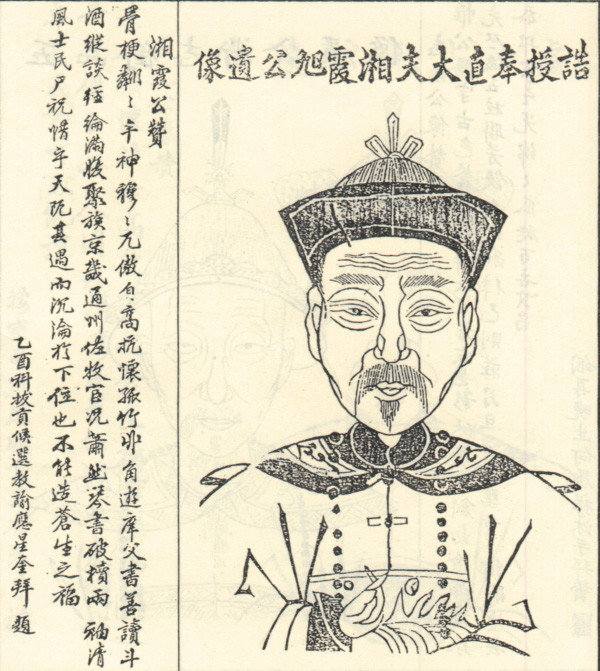 誥授奉直大夫湘霞旭公遺像
湘霞公贊
骨梗翩〻乎神穆〻兀傲自高抗懷孤竹丱角遊庠父書善讀斗
酒縱談經綸滿腹聚族京畿通州佐牧官況蕭然琴書破櫝兩袖清
風士民尸祝惜乎天阨其遇而沉淪於下位也不能造蒼生之福
乙酉科拔貢候選教諭應星奎拜題